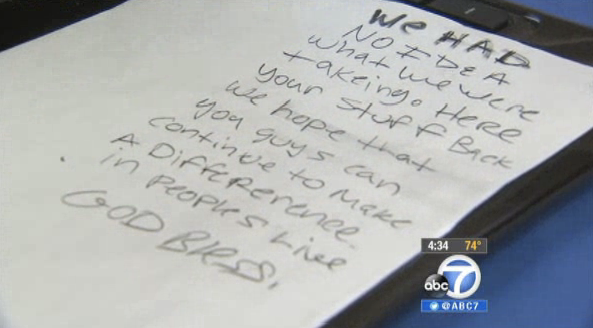 We HAD
NO IDEA
what we were
takeing. Here
your stuff Back
we hope that
you guys can
continue to make
A Difference
in peoples live
GOD BLESS.
4:34 74°
abc 7
@ABC7